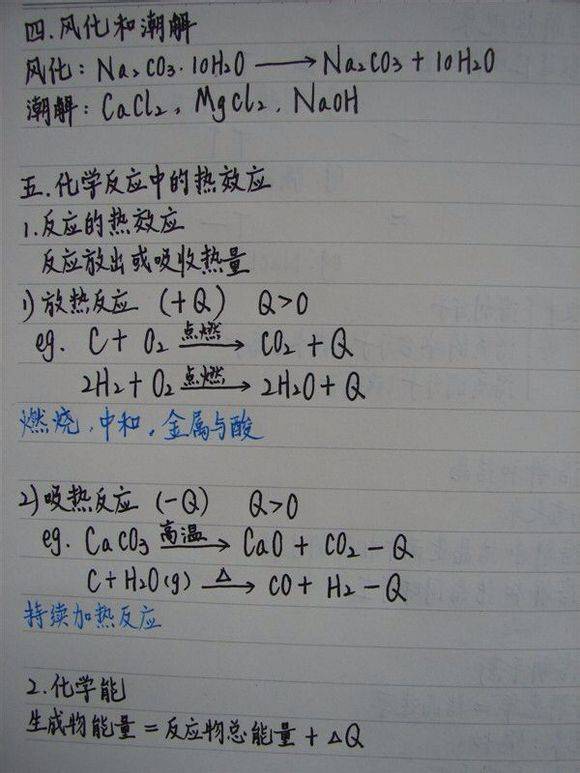 四.风化和潮解
风化：Na₂CO₃·10H₂O ⟶ Na₂CO₃ + 10H₂O
潮解：CaCl₂，MgCl₂，NaOH
五.化学反应中的热效应
1.反应的热效应
反应放出或吸收热量
1) 放热反应 (+Q) Q>0
eg. C + O₂ —点燃→ CO₂ + Q
2H₂ + O₂ —点燃→ 2H₂O + Q
燃烧，中和，金属与酸
2) 吸热反应 (-Q) Q>0
eg. CaCO₃ —高温→ CaO + CO₂ - Q
C + H₂O(g) —△→ CO + H₂ - Q
持续加热反应
2.化学能
生成物能量 = 反应物总能量 + △Q